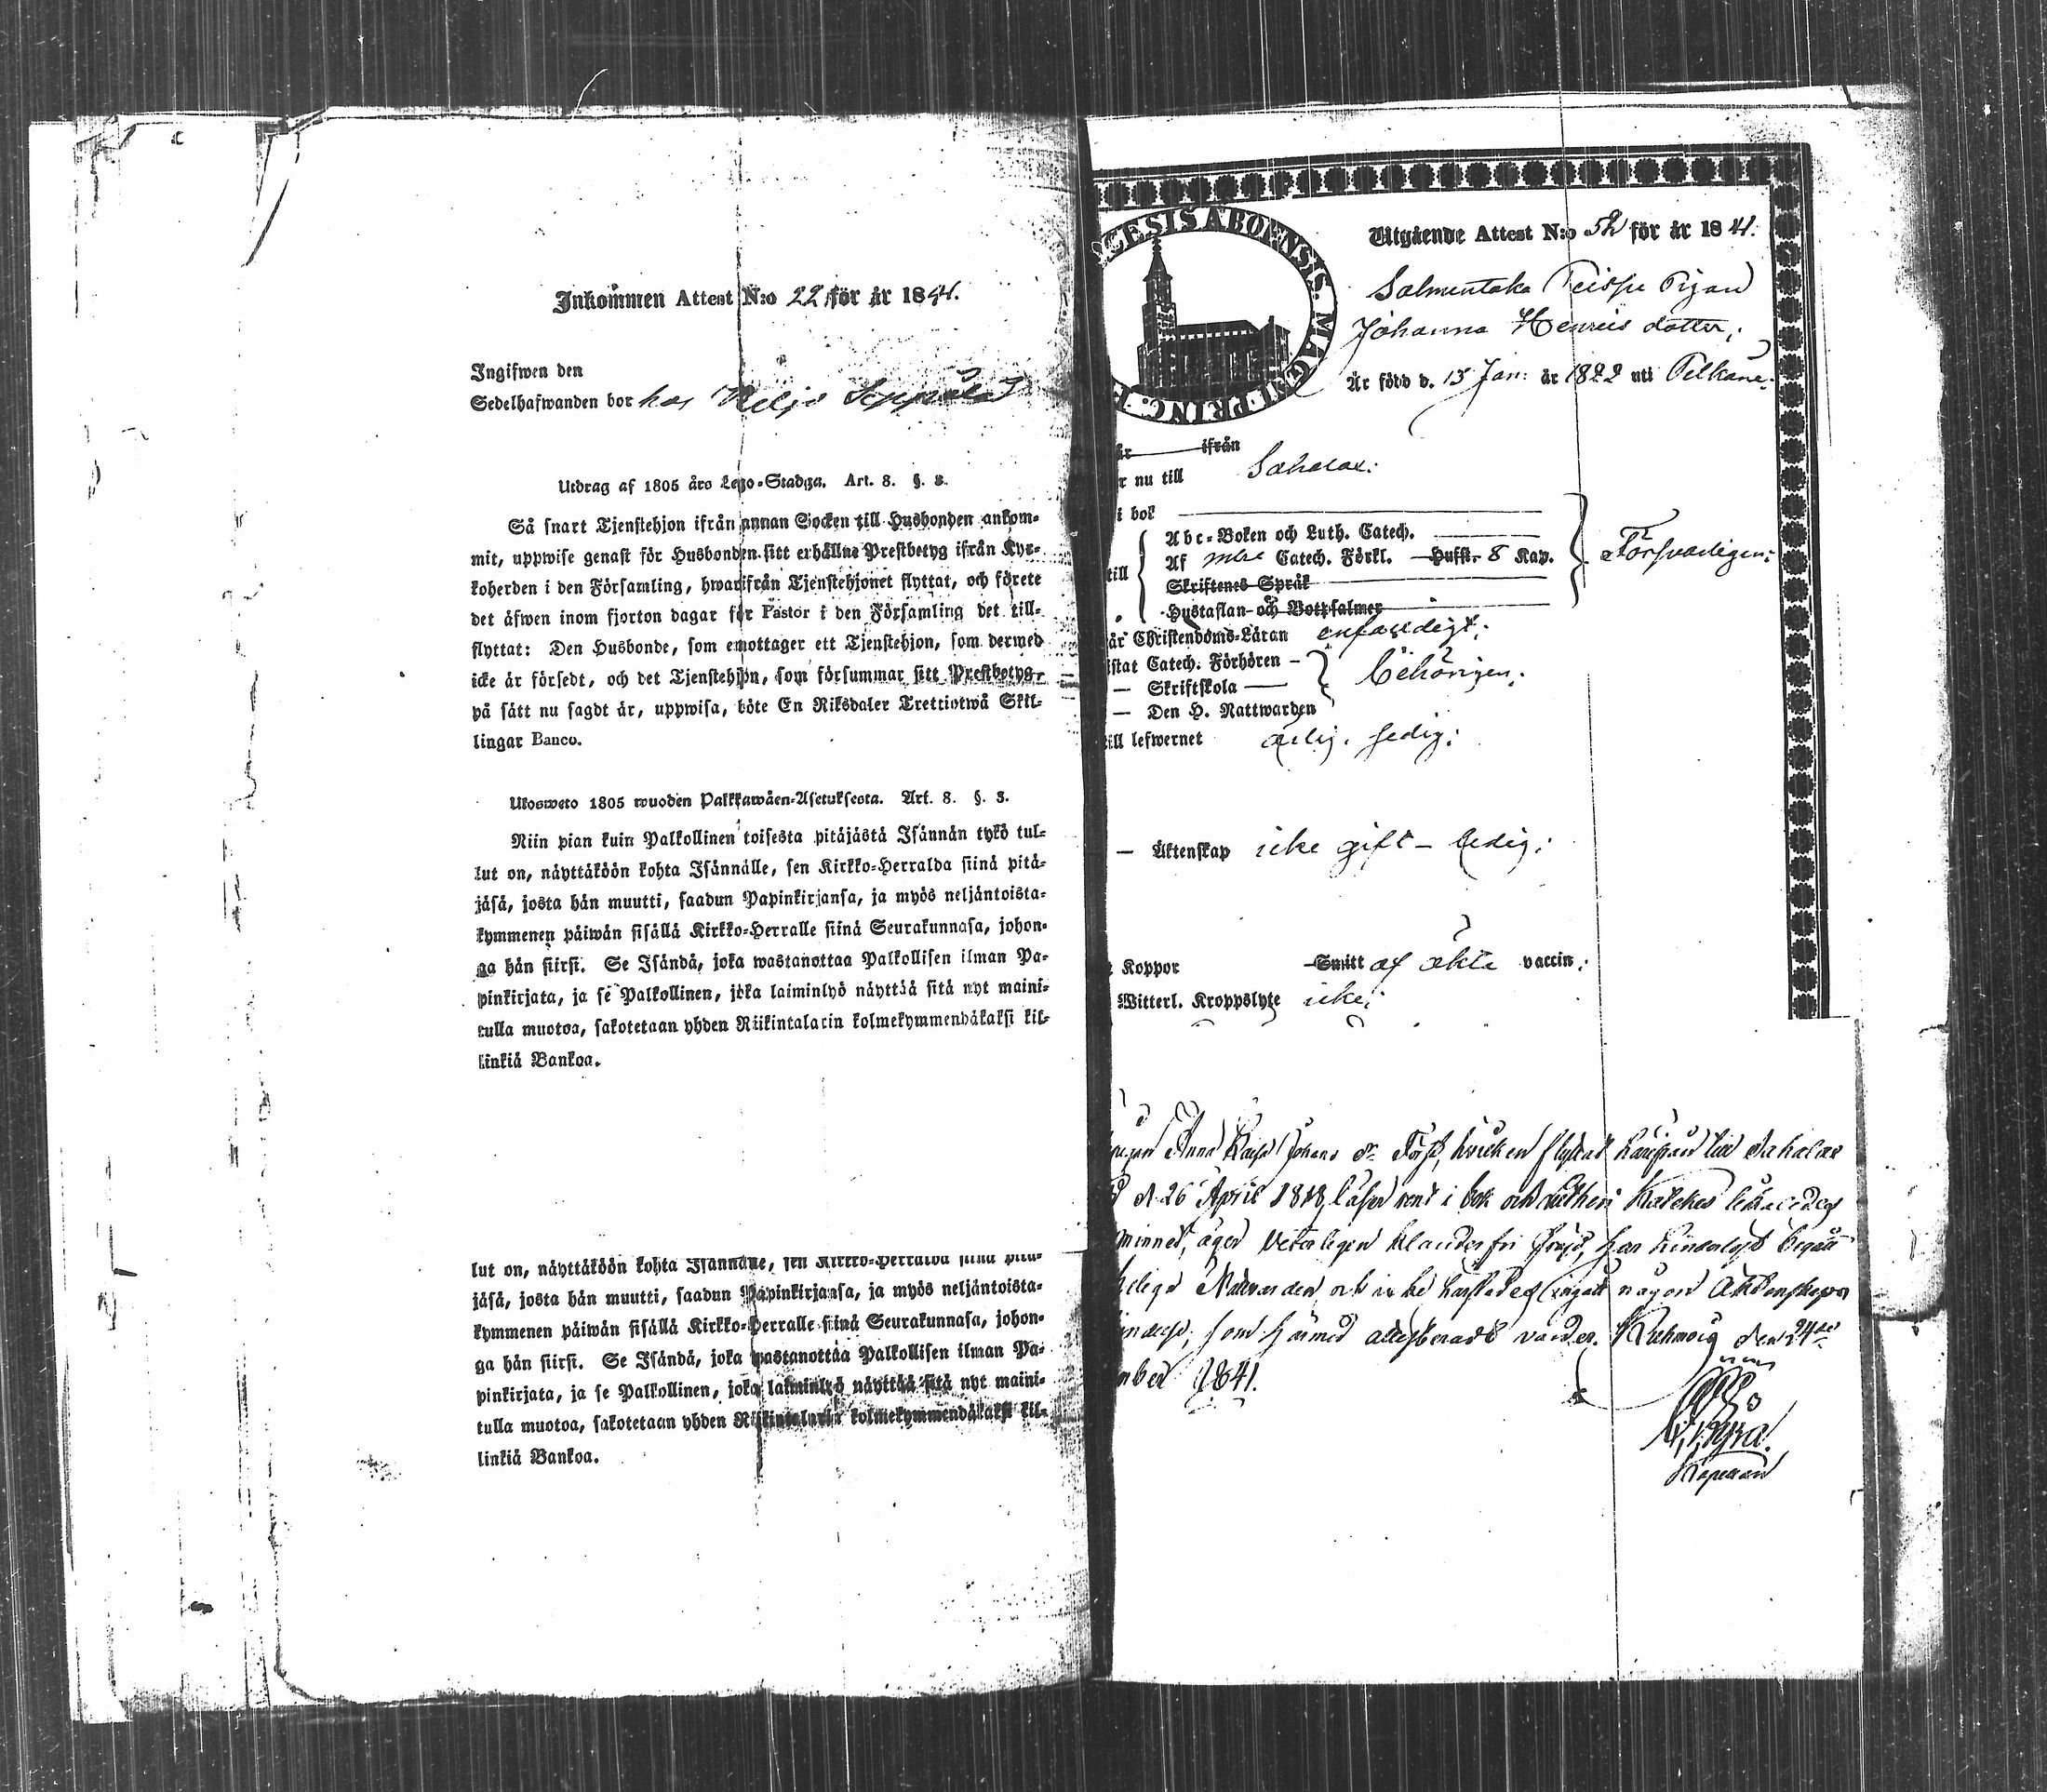 Inkommen Attest N:o 22 för år 1841.
Ingifwen den
Sedelhafwanden bor hos Seppälä
Utdrag af 1805 års Lego-Stadga. Art. 8. §. 3.
Så snart Tjenstehjon ifrån annan Socken till Husbonden ankom-
mit, uppwise genast för Husbonden sitt erhållne Prestbetyg ifrån Kyr-
koherden i den Församling, hwarifrån Tjenstehjonet flyttat, och förete
det äfwen inom fjorton dagar för Pastor i den Församling det till-
flyttat: Den Husbonde, som emottager ett Tjenstehjon, som dermed
icke är försedt, och det Tjenstehjon, som försummar sitt Prestbetyg,
på sätt nu sagdt är, uppwisa, böte En Riksdaler Trettiotwå Skil-
lingar Banco.
Ulosweto 1805 wuoden Palkkawäen-Asetuksesta. Art. 8. §. 3.
Niin pian kuin Palkollinen toisesta pitäjästä Isännän tykö tul-
lut on, näyttäköön kohta Isännälle, sen Kirkko-Herralda siinä pitä-
jäsä, josta hän muutti, saadun Papinkirjansa, ja myös neljäntoista-
kymmenen päiwän sisällä Kirkko-Herralle siinä Seurakunnasa, johon-
ga hän siirsi. Se Isändä, joka wastanottaa Palkollisen ilman Pa-
pinkirjata, ja se Palkollinen, joka laiminlyö näyttää sitä nyt maini-
tulla muotoa, sakotetaan yhden Riikintalarin kolmekymmendäkaksi kil-
linkiä Bankoa.
lut on, näyttäköön kohta Isännälle, sen Kirkko-Herralda siinä pitä-
jäsä, josta hän muutti, saadun Papinkirjansa, ja myös neljäntoista-
kymmenen päiwän sisällä Kirkko-Herralle siinä Seurakunnasa, johon-
ga hän siirsi. Se Isändä, joka wastanottaa Palkollisen ilman Pa-
pinkirjata, ja se Palkollinen, joka laiminlyö näyttää sitä nyt maini-
tulla muotoa, sakotetaan yhden Riikintalarin kolmekymmendäkaksi kil-
linkiä Bankoa.
CESIS ABOENSIS. MAGNI PRINC. F
Utgående Attest N:o 52 för år 1841.
Salmentaka Teispe Pigan
Johanna Henrics dotter;
Är född d. 15 Jan: år 1822 uti Pelkäne.
är ifrån
r nu till Sahalax:
i bok
till
Abc-Boken och Luth. Catech.
Af mbre Catech. Förkl. Husst. 8 Kap.
Försvarligen;
Skriftenes Språk
Hustaflan och Botpsalmer
år Christendoms-Läran enfaldigt;
istat Catech. Förhören –
— Skriftskola —
behörigen;
— Den H. Nattwarden
till lefwernet ärlig. sedig;
— Äktenskap icke gift – ledig;
Koppor Smitt af äkta vaccin;
Witterl. Kroppslyte icke;
Pigan Anna Kaisa Johans dr hvilken flyttat härifrån till Sahalax
d. 26 April 1818, läser rent i bok och
minnet, äger veterligen klanderfri frejd, har
helige Nattvarden och icke ingått någon Äktenskaps
som härmed attesteradt varder. Kuhmois den 24de
mber 1841.
Kapellan